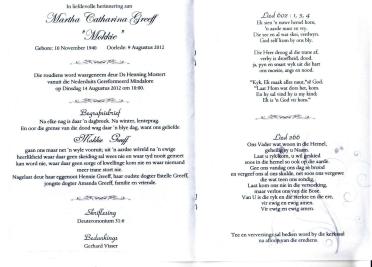 In liefdevolle herinnering aan
Martha Catharina Greeff
"Mokkie"
Gebore: 16 November 1940 Oorlede: 9 Augustus 2012
Die roudiens word waargeneem deur Ds Henning Mostert
vanuit die Nederduits Gereformeerd Mindalore
op Dinsdag 14 Augustus 2012 om 10:00.
Begrafnisbrief
Na elke nag is daar 'n dagbreek. Na winter, lenteprag.
En oor die grense van die dood wag daar 'n blye dag, want ons geliefde
Mokkie Greeff
gaan ons maar net 'n wyle vooruit; uit 'n aardse wêreld na 'n ewige
heerlikheid waar daar geen skeiding sal wees nie en waar tyd nooit gemeet
kan word nie, waar daar geen sorge of bewolkinge kom nie en waar niemand
meer trane stort nie.
Nagelaat deur haar eggenoot Hennie Greeff, haar oudste dogter Estelle Greeff,
jongste dogter Amanda Greeff, familie en vriende.
Skriflesing
Deuteronomium 31:6
Bedankings
Gerhard Visser
Lied 602 : 1, 3, 4
Ek sien 'n nuwe hemel kom,
'n aarde nuut en vry.
Die see en al wat skei, verdwyn,
God self kom by ons bly.
Die Heer droog al die trane af,
verby is droefheid, dood,
ja, pyn en smart vyk uit die hart
om moeite, angs en nood.
"Kyk, Ek maak alles nuut,"sê God.
"Laat Hom wat dors het, kom.
En hy sal vind by is my kind:
Ek is 'n God vir hom."
Lied 266
Ons Vader wat woon in die Hemel,
geheilig u Naam.
Laat u ryk kom, u wil geskied
soos in die hemel so ook op die aarde.
Gee ons vandag ons dag se brood
en vergeef ons al ons skulde, net soos ons vergewe
die wat teen ons sondig.
Laat kom ons nie in die versoeking,
maar verlos ons van die Bose.
Van U is die ryk en die sterkte en die eer,
vir ewig en ewig amen.
Vir ewig en ewig amen.
Tee en verversings sal bedien word by die kerksaal
na afloop van die erediens.